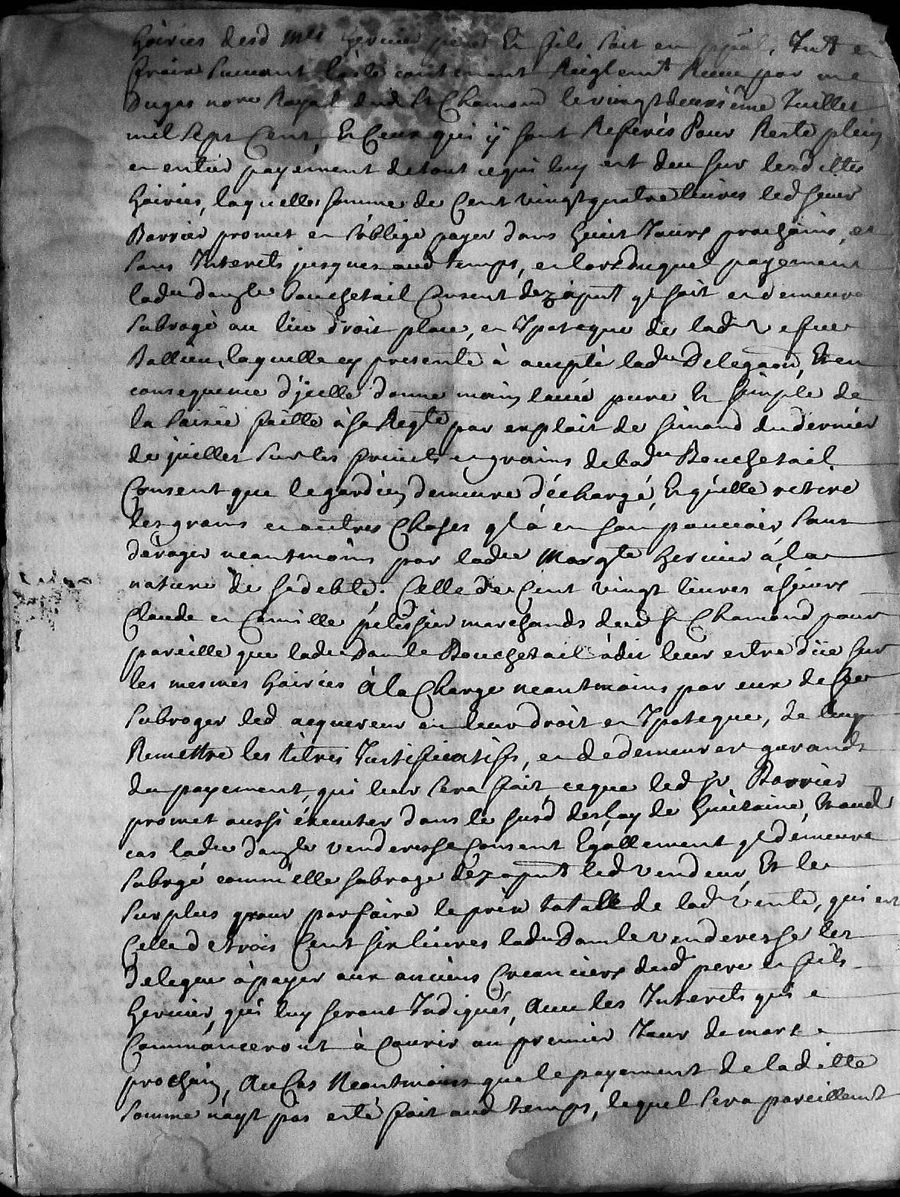 hoiries desd mes Gervier pere & fils soit en ppal, Intt en
frais suivant leste contenant Reiglemt Receu par me
Dugas nore Royal dud st Chamond le vingt deuxième Juillet
mil sept Cent, & Ceux qui ÿ sont Referés Pour Reste plein
en entier payement de tout ce qui luy est deu sur lesdittes
hoiries, laquelle somme de Cent vingt quatre livres led sieur
Barrier promet en s'oblige payer dans huit Jours prochains, et
sans Interets jusques aud temps, en lors duquel payement
lad Bouchetail Consent dez àpnt qu'il soit en demeure
subrogé au lieu droit place, en Ypoteque de lad vefue
Ballieu, laquelle cy presente à accepté lad Delegaon, & en
consequence d'jcelle donne main levée pure & simple de
la saisie faitte à sa Reqte par exploit de Simand du dernier
de juillet sur les fruits en grains de lad Bouchetail
Consent que le gardien demeure déchargé, & qu'elle retire
les grains en autres Choses qu'il à en son pouvoir sans
deroger neantmoins par lad Margte Gervier à la
nature de sa debte. Celle de Cent vingt livres a sieurs
Claude en Camille pelissier marchands dud st Chamond pour
pareille que lad Dam le Bouchetail à dit leur estre düe sur
les mesmes hoiries à la Charge neantmoins par eux de
subroger led acquereur en leur droit en Ypoteque, de luy
Remettre les titres Justificatifs, en de demeurer garands
du payement, qui leur sera fait ce que led sr Barrier
promet aussi éxecuter dans le susd deslay de huitaine, & aud
cas lad venderesse Consent Egallement qu'il demeure
subrogé comm'elle subroge dez apnt led vendeur, & le
surplus pour parfaire le prix totalle de lad vente, qui est
Celle de trois Cent six livres lad Dam le venderesse les
delegue à payer aux anciens Creanciers dud pere en fils
Gervier, qui luy seront Indiqués, avec les Interets qui
Commanceront à Courir au premier Jour de mars
prochain, Au Cas Neantmoins que le payement de laditte
somme nayt pas esté fait aud temps, lequel sera pareillemt